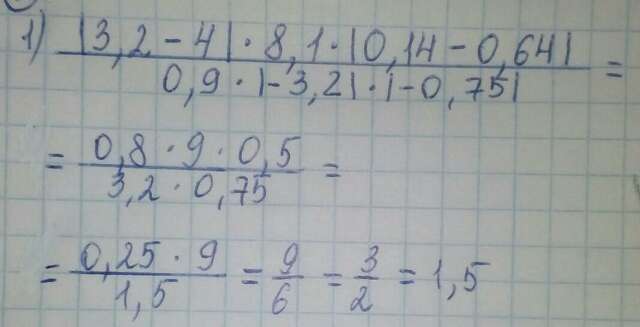 1) |3,2 - 4| · 8,1 · |0,14 - 0,64|
0,9 · |-3,2| · |-0,75| =
= 0,8 · 9 · 0,5
3,2 · 0,75 =
= 0,25 · 9 / 1,5 = 9/6 = 3/2 = 1,5